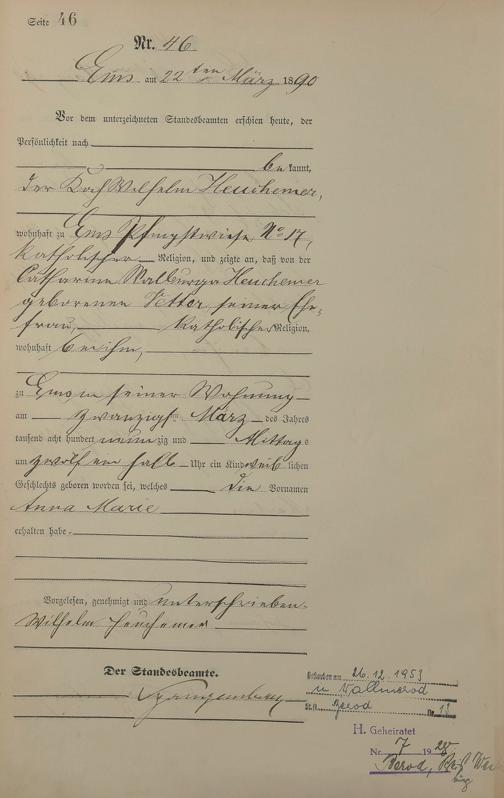 Seite 46
Nr. 46.
Ems am 22ten März 1890
Vor dem unterzeichneten Standesbeamten erschien heute, der
Persönlichkeit nach
be kannt,
der Koch Wilhelm Heuchemer,
wohnhaft zu Ems Pfingstwiese No 17,
katholischer Religion, und zeigte an, daß von der
Catharine Walburga Heuchemer
geborenen Vetter, seiner Ehe-
frau, katholischer Religion,
wohnhaft bei ihm,
zu Ems in seiner Wohnung
am zwanzigsten März des Jahres
tausend acht hundert neunzig und Mittags
um zwölf ein halb Uhr ein Kind weiblichen
Geschlechts geboren worden sei, welches die Vornamen
Anna Marie
erhalten habe.
Vorgelesen, genehmigt und unterschrieben.
Wilhelm Heuchemer
Der Standesbeamte.
am 26.12.1953
Wallmerod
Berod Nr. 13
H. Geheiratet
Nr. 7 19
Berod,